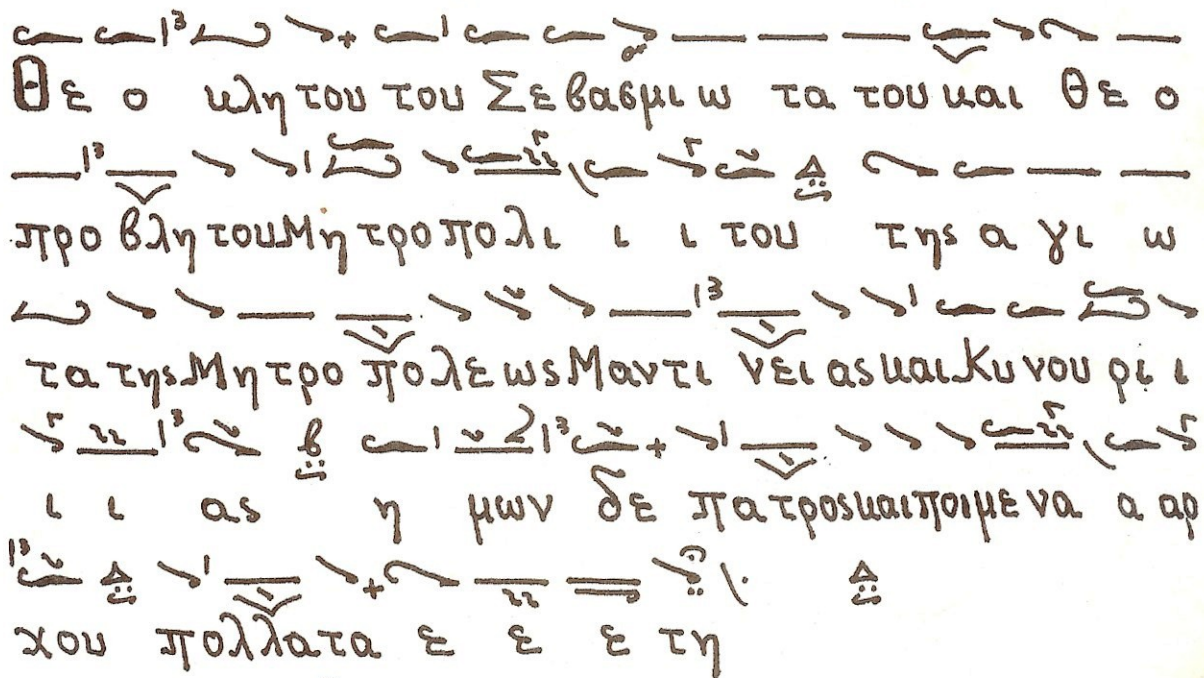 Θε ο κλη του του Σε βασμι ω τα του και Θε ο
προ βλη του Μη τρο πο λι ι ι του της α γι ω
τα της Μη τρο πο λε ως Μαν τι νει ας και Κυ νου ρι ι
ι ι ας η μων δε πα τρος και ποι με να α αρ
χου πολ λα τα ε ε ε τη